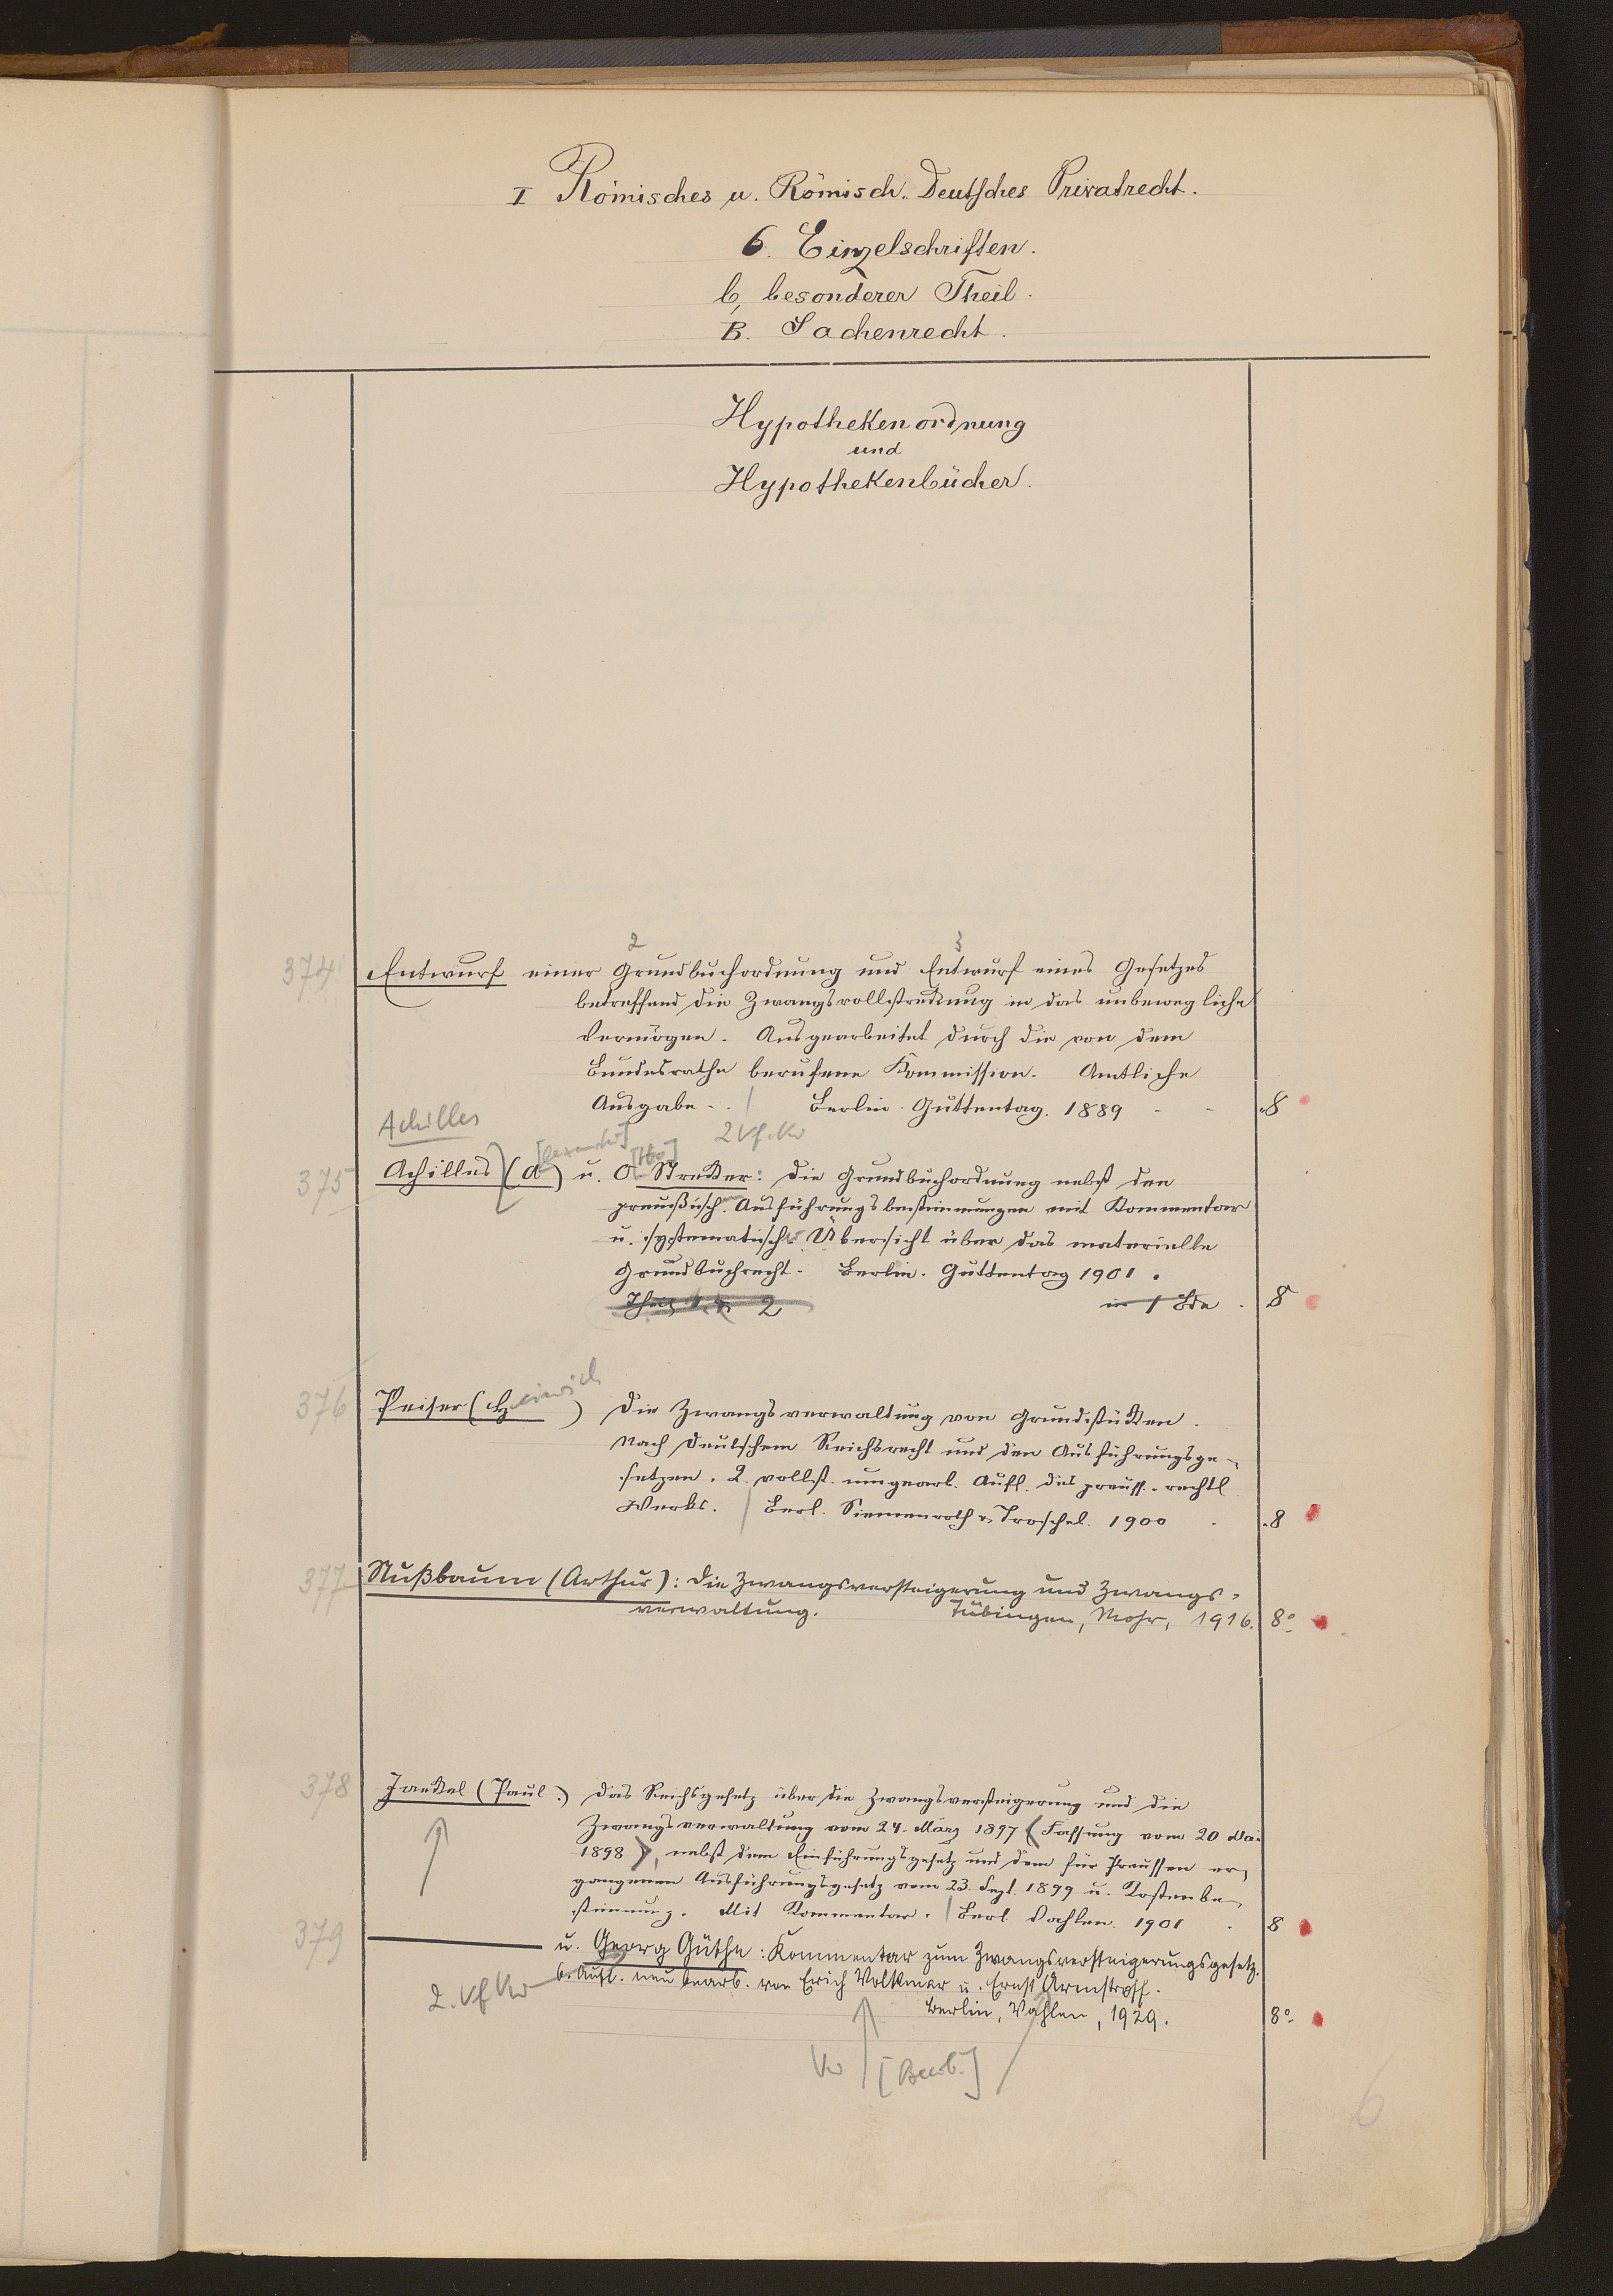 I Römisches u. Römisch-Deutsches Privatrecht.
6. Einzelschriften.
b, besonderer Theil.
B. Sachenrecht.
Hypothekenordnung
und
Hypothekenbücher.
2 3
374 Entwurf einer Grundbuchordnung und Entwurf eines Gesetzes
betreffend die Zwangsvollstreckung in das unbewegliche
Vermögen. Ausgearbeitet durch die von dem
Bundesrathe berufene Kommission. Amtliche
Ausgabe. | Berlin. Guttentag. 1889 - - 8
Achilles
[lexander] [tto] 2 Vf. Kw
375 Achilles (A ) u. O. Strecker: Die Grundbuchordnung nebst den
preußisch. Ausführungsbestimmungen mit Kommentar
u. systematischer Übersicht über das materielle
Grundbuchrecht. Berlin. Guttentag 1901.
2 in 1 Bde. 8
376 Peiser (Heinrich) Die Zwangsverwaltung von Grundstücken.
Nach Deutschem Reichsrecht und den Ausführungsge-
setzen. 2. vollst. umgearb. Aufl. des preuss.-rechtl
Werks. | Berl. Siemenroth & Troschel. 1900 . 8
377 Nußbaum (Arthur): Die Zwangsversteigerung und Zwangs-
verwaltung. Tübingen, Mohr, 1916. 8°
378 Jaeckel (Paul.) Das Reichsgesetz über die Zwangsversteigerung und die
Zwangsverwaltung vom 24. März 1897 (Fassung vom 20 Mai
1898), nebst dem Einführungsgesetz und dem für Preussen er-
gangenen Ausführungsgesetz vom 23. Sept. 1899 u. Kostenbe-
stimmung. Mit Kommentar. | Berl. Vahlen. 1901 . 8
379 ——— u. Georg Güthe: Kommentar zum Zwangsversteigerungsgesetz.
6. Aufl. neu bearb. von Erich Volkmar u. Ernst Armstroff.
2. Vf Kw
Berlin, Vahlen, 1929. 8°
Vw [Bearb.]
6